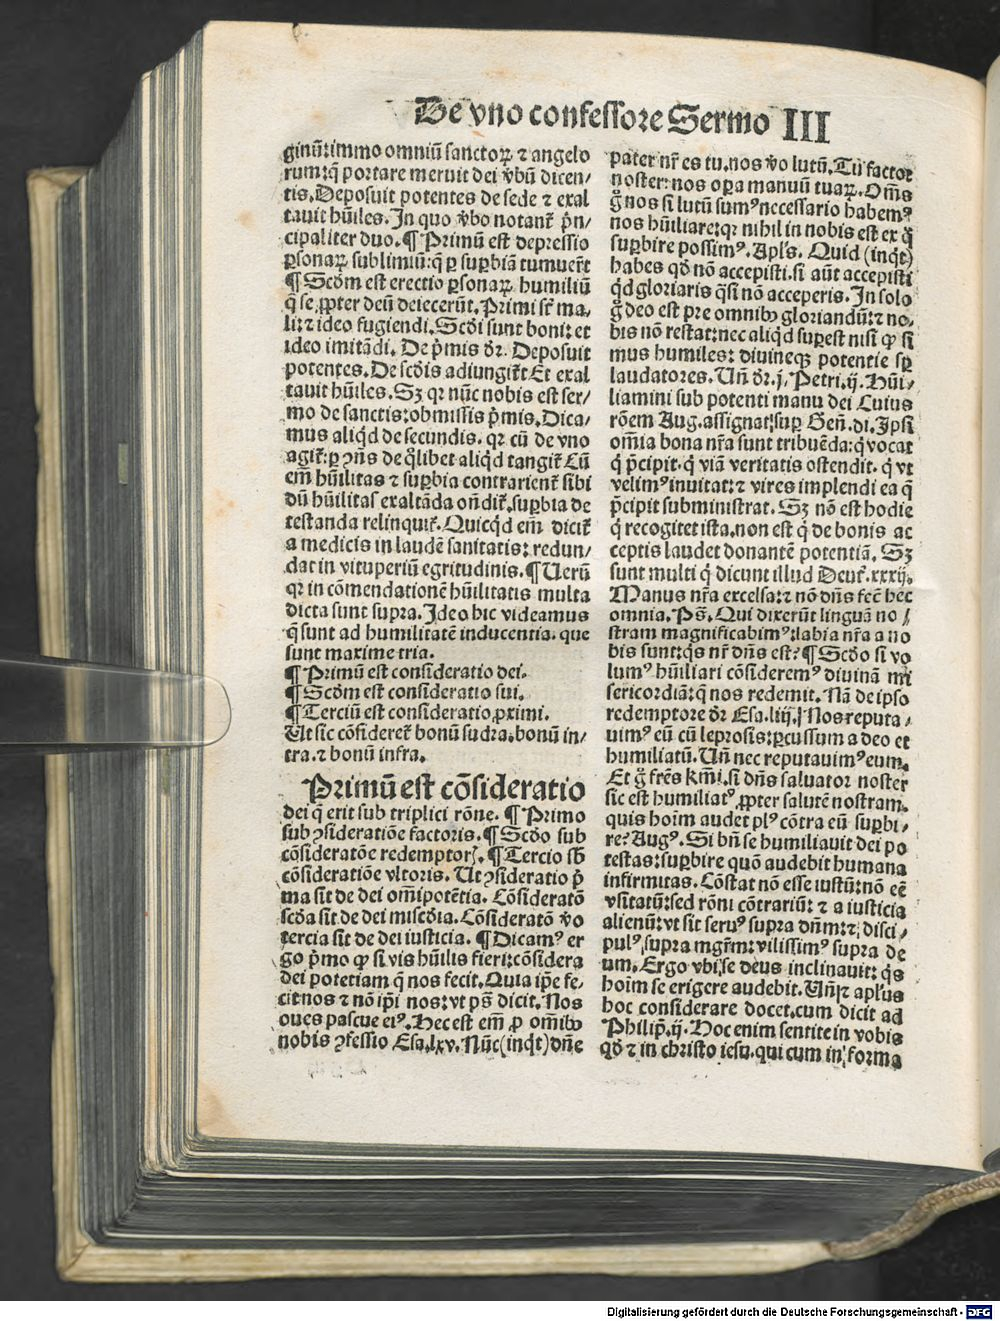 De vno confessore Sermo III
ginū: immo omniū sanctoꝝ ⁊ angelo
rum: q̄ portare meruit dei v̄bū dicen/
tis. Deposuit potentes de sede ⁊ exal
tauit hūiles. In quo v̄bo notant᷑ p̄n/
cipaliter duo. ¶ Primū est depressio
ꝑsonaꝝ sublimiū: q̄ ꝑ suꝑbiā tumuer̄t
¶ Scd̄m est erectio ꝑsonaꝝ humiliū
q̄ se ꝓpter deū deiecerūt. Primi sūt ma/
li: ⁊ ideo fugiendi. Scd̄i sunt boni: et
ideo imitādi. De p̄mis dr̄. Deposuit
potentes. De scd̄is adiungit᷑ Et exal
tauit hūiles. Sꝫ qꝛ nūc nobis est ser/
mo de sanctis: obmissis p̄mis. Dica/
mus aliqd̄ de secundis. qꝛ cū de vno
agit᷑: ꝑ ꝯn̄s de q̄libet aliqd̄ tangit᷑ Cū
em̄ hūilitas ⁊ suꝑbia contrarient᷑ sibi
dū hūilitas exaltāda on̄dit᷑. suꝑbia de
testanda relinquit᷑. Quicqd̄ em̄ dicit᷑
a medicis in laudē sanitatis: redun/
dat in vituperiū egritudinis. ¶ Uerū
qꝛ in cōmendationē hūilitatis multa
dicta sunt supra. Ideo hic videamus
q̄ sunt ad humilitatē inducentia. que
sunt maxime tria.
¶ Primū est consideratio dei.
¶ Scd̄m est consideratio sui.
¶ Terciū est consideratio ꝓximi.
Ut sic cōsideret᷑ bonū supra. bonū in/
tra. ⁊ bonū infra.
Primū est cōsideratio
dei q̄ erit sub triplici rōne. ¶ Primo
sub ꝯsideratiōe factoris. ¶ Scd̄o sub
cōsideratōe redemptoꝝ. ¶ Tercio sb̄
cōsideratiōe vltoris. Ut ꝯsideratio p̄
ma sit de dei om̄ipotētia. Cōsideratō
scd̄a sit de dei miscd̄ia. Cōsideratō v̄o
tercia sit de dei iusticia. ¶ Dicamꝰ er
go p̄mo ꝙ si vis hūilis fieri: cōsidera
dei potētiam q̄ nos fecit. Quia ip̄e fe/
cit nos ⁊ nō ip̄i nos: vt ps̄ dicit. Nos
oues pascue eiꝰ. Hec est em̄ ꝓ om̄ibꝰ
nobis ꝯfessio Esa. lxv. Nūc (inqt̄) dn̄e
pater nr̄ es tu. nos v̄o lutū. Tu factor
noster: nos oꝑa manuū tuaꝝ. Om̄s
g̊ nos si lutū sumꝰ necessario habemꝰ
nos hūiliare: qꝛ nihil in nobis est ex q̊
suꝑbire possimꝰ. Apl's. Quid (inqt̄)
habes qd̄ nō accepisti. si aūt accepisti
qd̄ gloriaris q̄si nō acceperis. In solo
g̊ deo est pre omnibꝰ gloriandū: ⁊ no/
bis nō restat: nec aliqd̄ suꝑest nisi ꝙ si
mus humiles: diuineqꝫ potentie sꝑ
laudatores. Uñ dr̄. j. Petri. ij. Hūi/
liamini sub potenti manu dei Cuius
rōem Aug. assignat sup Gen̄. di. Ipsi
om̄ia bona nr̄a sunt tribuēda: q̇ vocat
q̇ p̄cipit. q̇ viā veritatis ostendit. q̇ vt
velimꝰ inuitat: ⁊ vires implendi ea q̄
p̄cipit subministrat. Sꝫ nō est hodie
q̇ recogitet ista. non est q̇ de bonis ac
ceptis laudet donantē potentiā. Sꝫ
sunt multi q̇ dicunt illud Deut᷑. xxxij.
Manus nr̄a excelsa: ⁊ nō dn̄s fec̄ hec
omnia. Ps̄. Qui dixerūt linguā no/
stram magnificabimꝰ: labia nr̄a a no
bis sunt: q̇s nr̄ dn̄s est? ¶ Scd̄o si vo
lumꝰ hūiliari cōsideremꝰ diuinā mi
sericordiā: q̄ nos redemit. Nā de ipso
redemptore dr̄ Esa. liij. Nos reputa/
uimꝰ eū cū leprosis: ꝑcussum a deo et
humiliatū. Uñ nec reputauimꝰ eum.
Et g̊ fr̄es kr̄mi. si dn̄s saluator noster
sic est humiliatꝰ ꝓpter salutē nostram.
quis hoīm audet plꝰ cōtra eū suꝑbi/
re? Augꝰ. Si bn̄ se humiliauit dei po
testas: suꝑbire quō audebit humana
infirmitas. Cōstat nō esse iustū: nō eē
vsitatū: sed rōni cōtrariū: ⁊ a iusticia
alienū: vt sit seruꝰ supra dn̄m: ⁊ disci/
pulꝰ supra mgr̄m: vilissimꝰ supra de
um. Ergo vbi se deus inclinauit: q̇s
hoīm se erigere audebit. Uñ ⁊ apl'us
hoc considerare docet. cum dicit ad
Philip̄. ij. Hoc enim sentite in vobis
qd̄ ⁊ in christo iesu. qui cum in forma
Digitalisierung gefördert durch die Deutsche Forschungsgemeinschaft - DFG